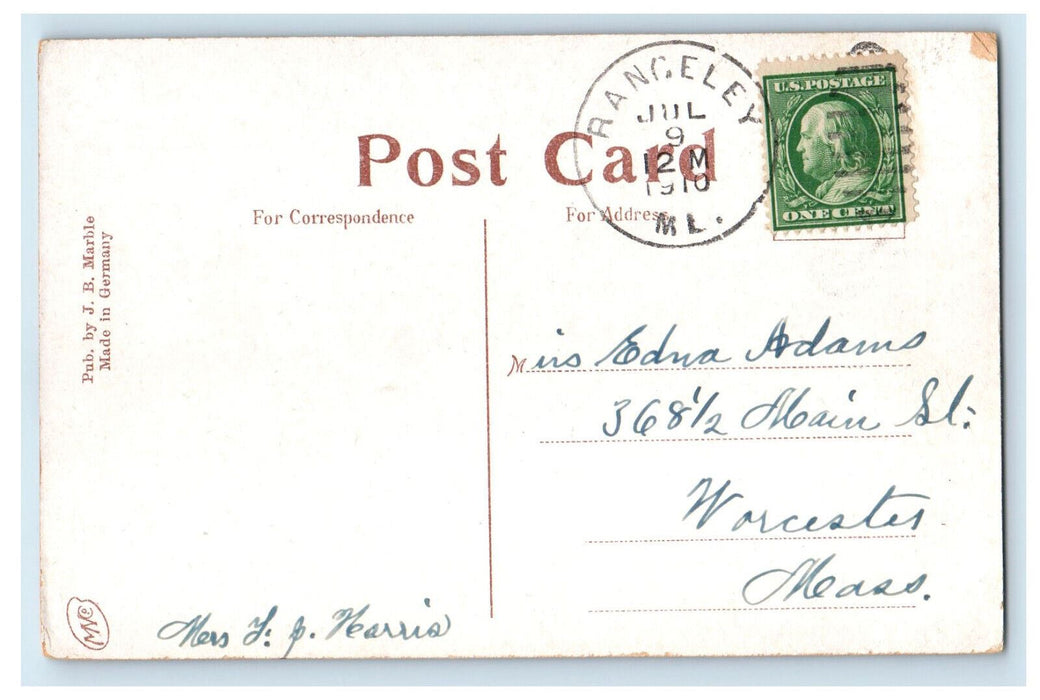 Post Card
For Correspondence
For Address
RANGELEY
JUL
9
12 M
1910
ME.
U.S. POSTAGE
ONE CENT
Pub. by J. B. Marble
Made in Germany
Miss Edna Adams
368 1/2 Main St.
Worcester
Mass.
Mrs F. J. Harris